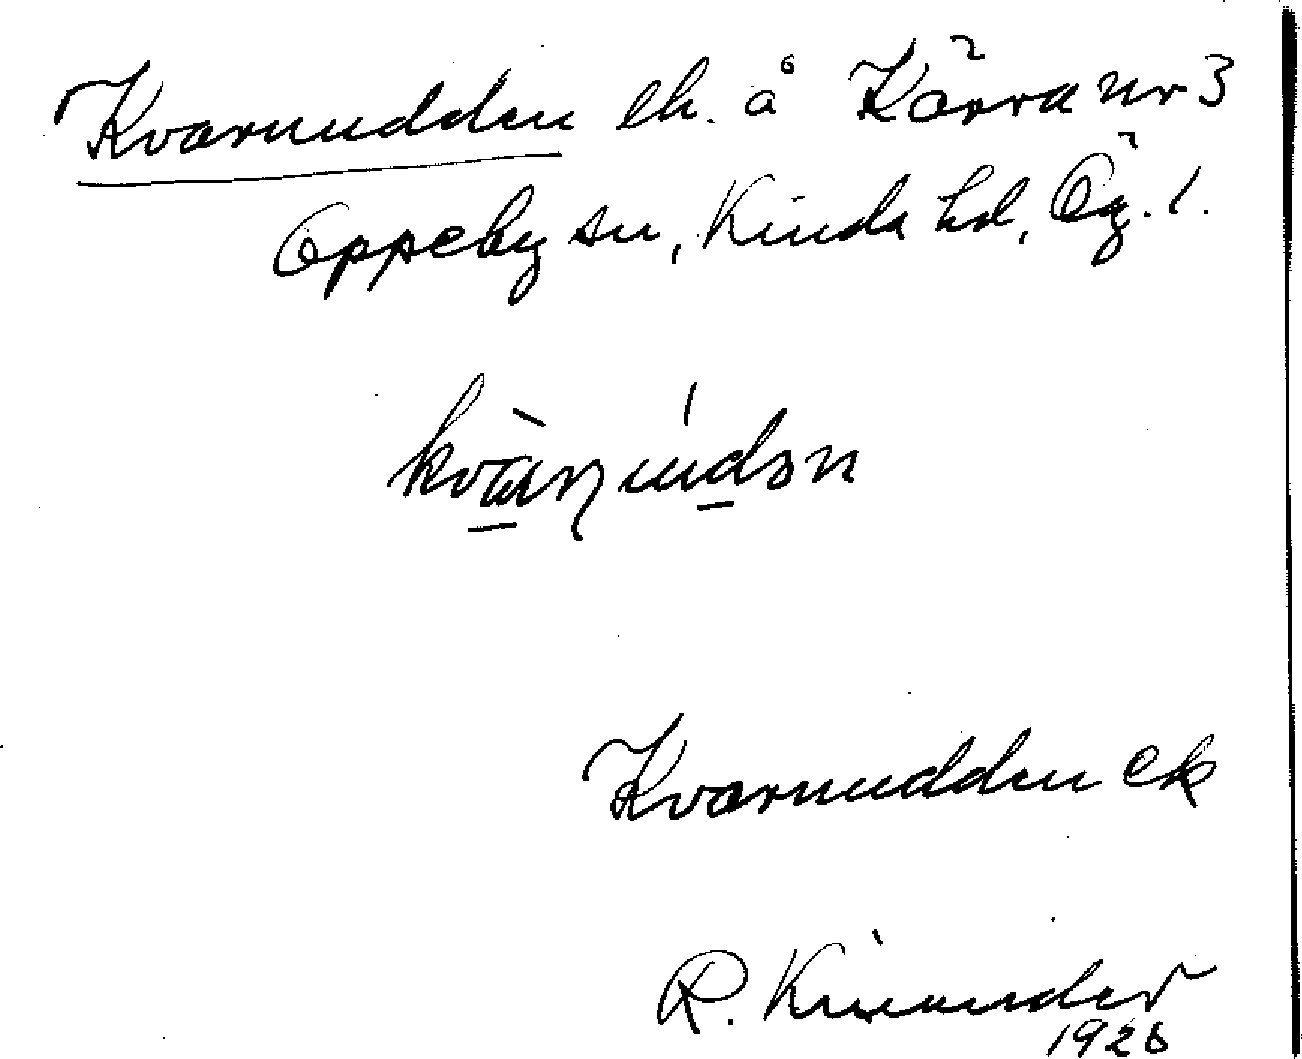 Kvarnudden lh. å Kärra nr 3
Oppeby sn, Kinda hd, Ög. l.
Kvarnudden ek
R. Kinander
1926